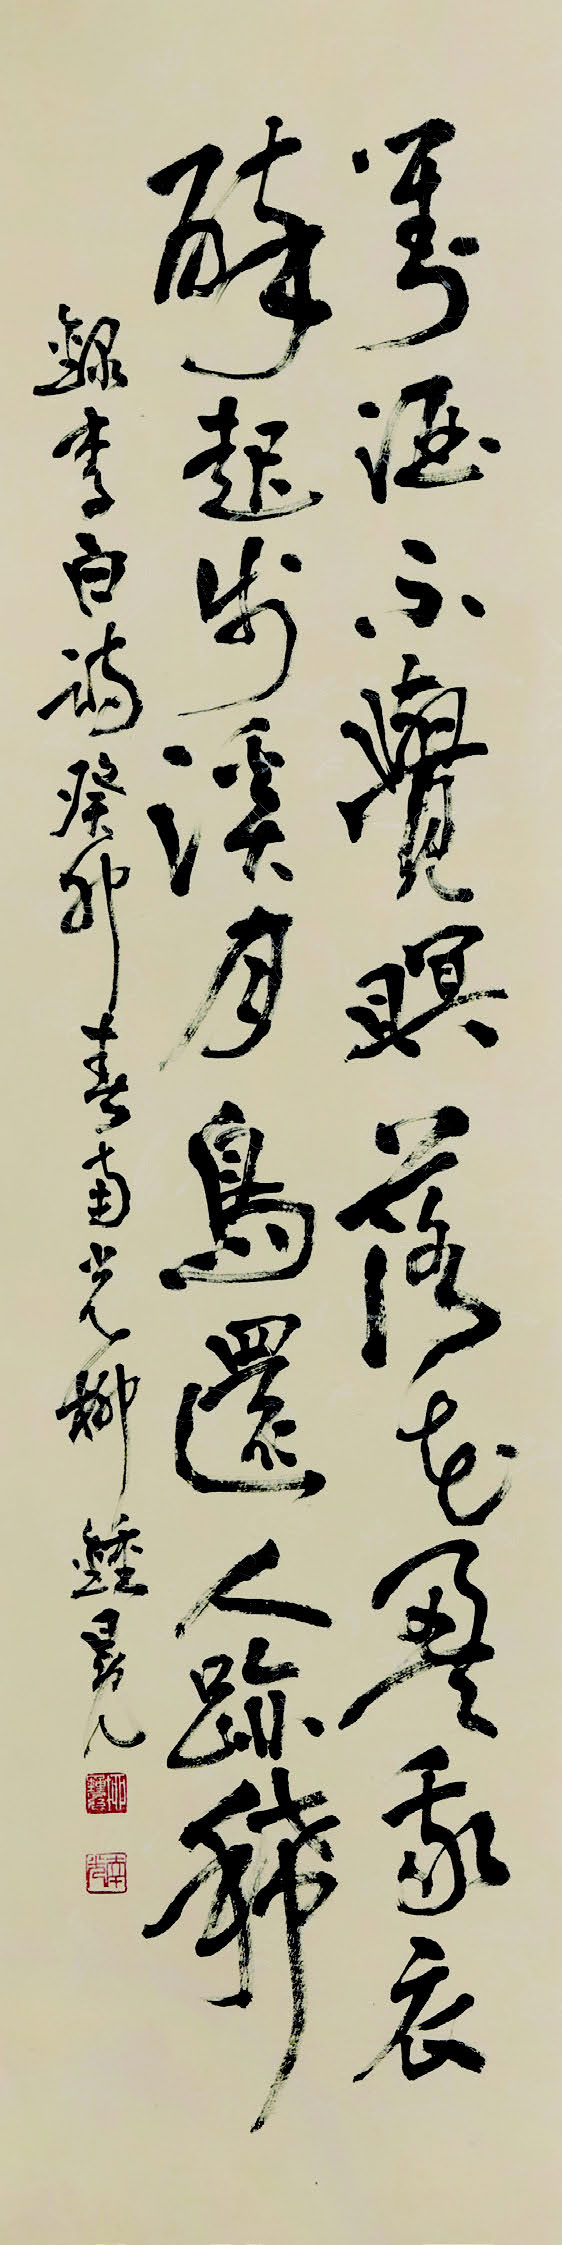 對酒不覺暝落花盈我衣
醉起步溪月鳥還人跡稀
錄李白詩癸卯春南光柳鍾晃
南光